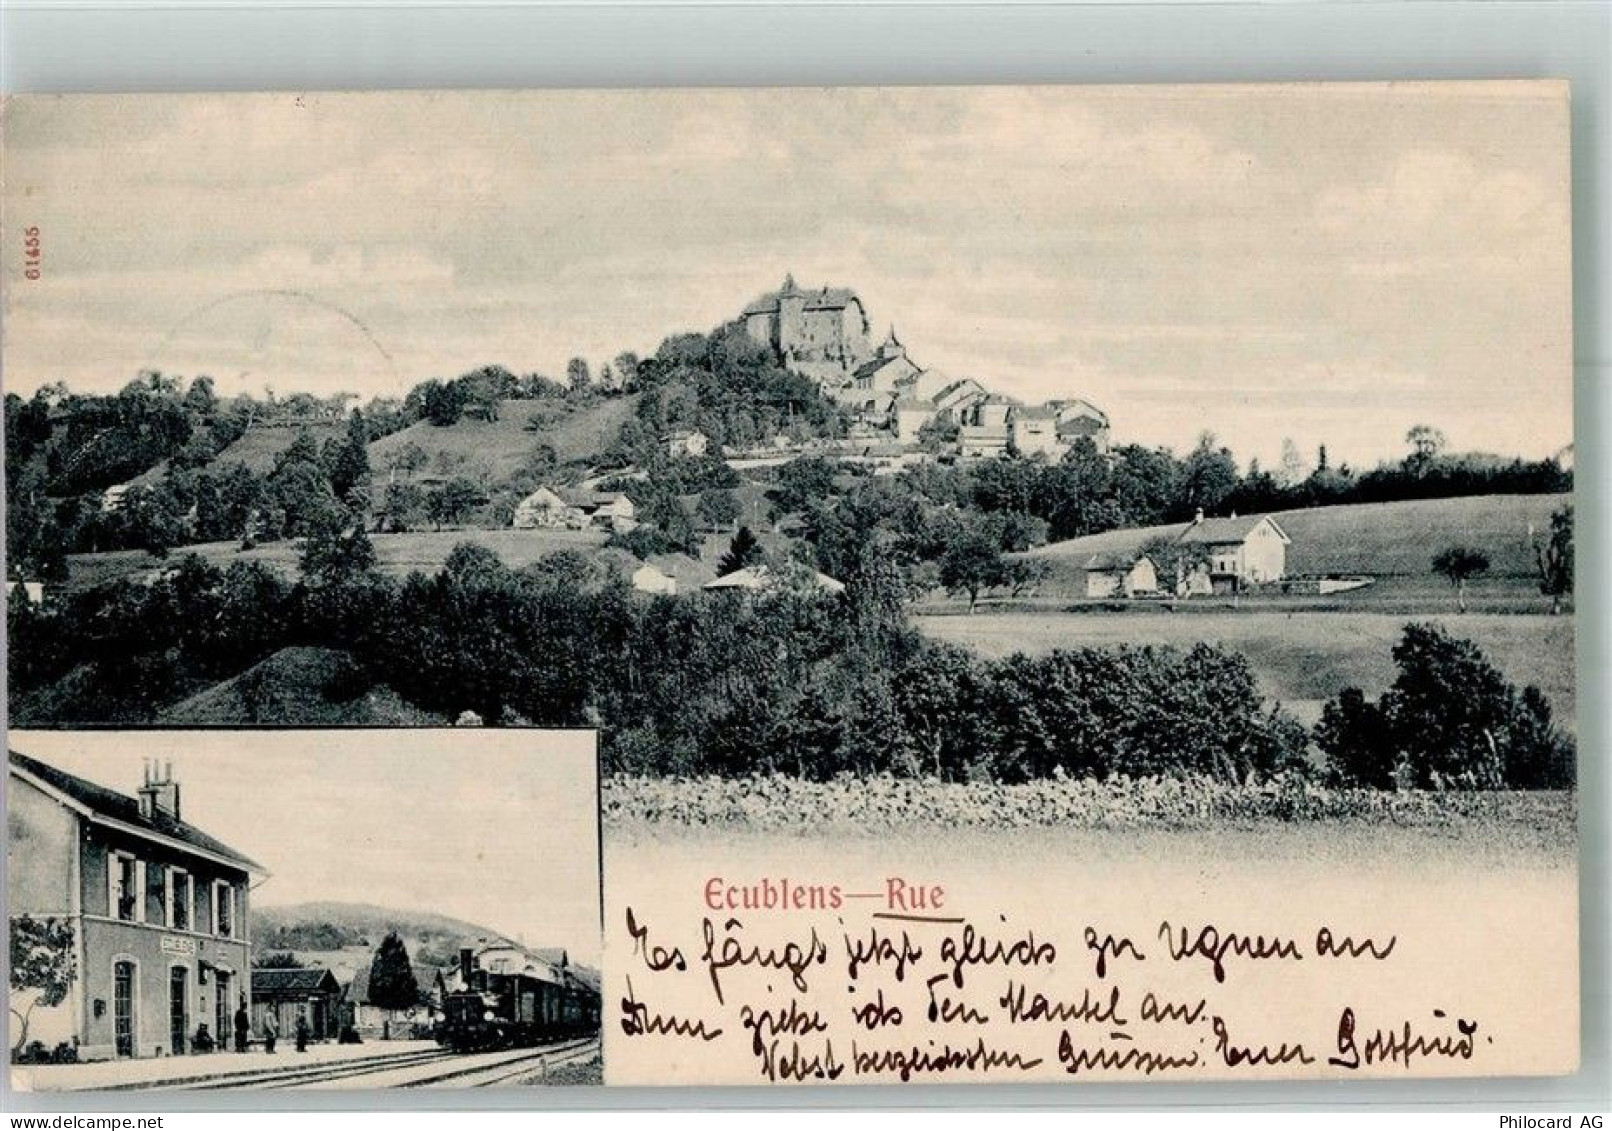 61455
Ecublens—Rue
Es fängt jetzt gleich zu regnen an
Dum ziehe ich den Mantel an.
Nebst herzlichsten Grüssen: Euer Gottfried.
ECUBLENS
Philocard AG